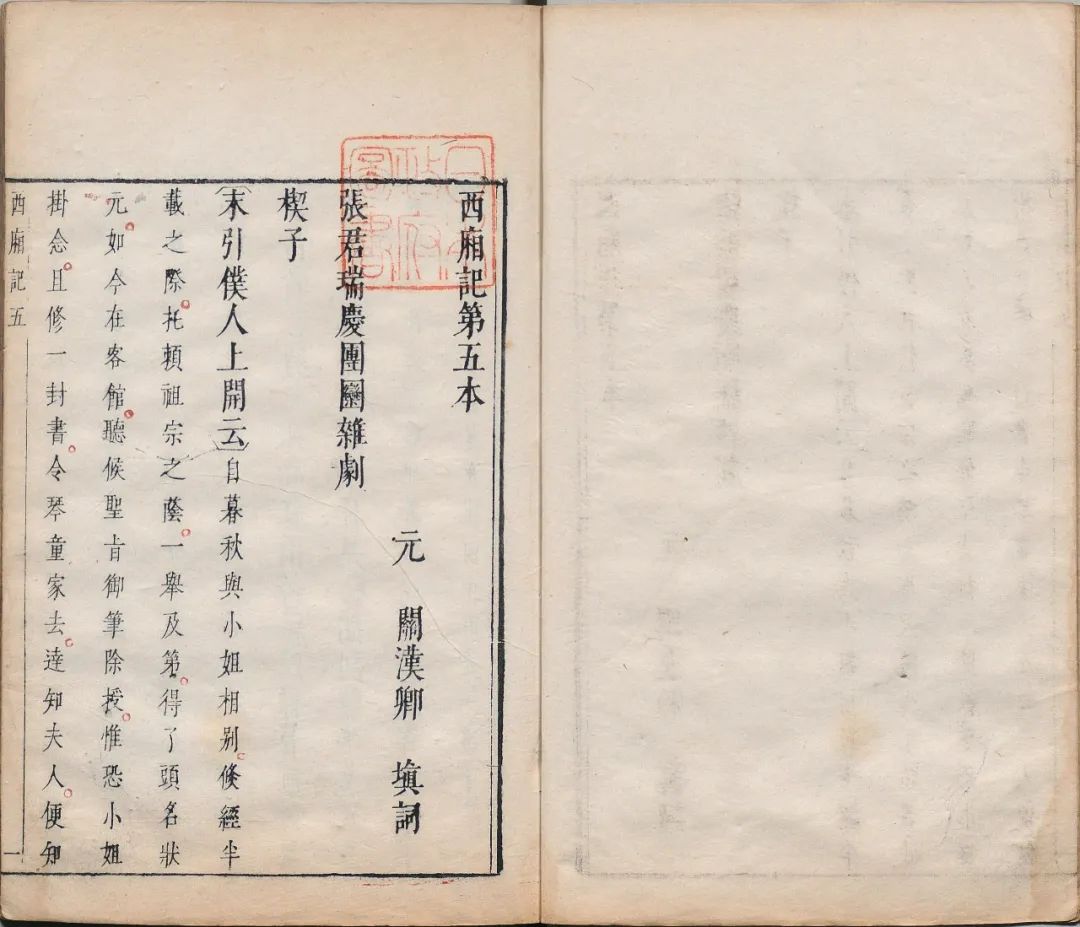 西廂記第五本
元　關漢卿　塡詞
張君瑞慶團圞雜劇
楔子
（末引僕人上開云）自暮秋與小姐相别倐經半
載之際托頼祖宗之蔭一舉及第得了頭名狀
元如今在客館聽候聖旨御筆除授惟恐小姐
掛念且修一封書令琴童家去達知夫人便知
西廂記五
一